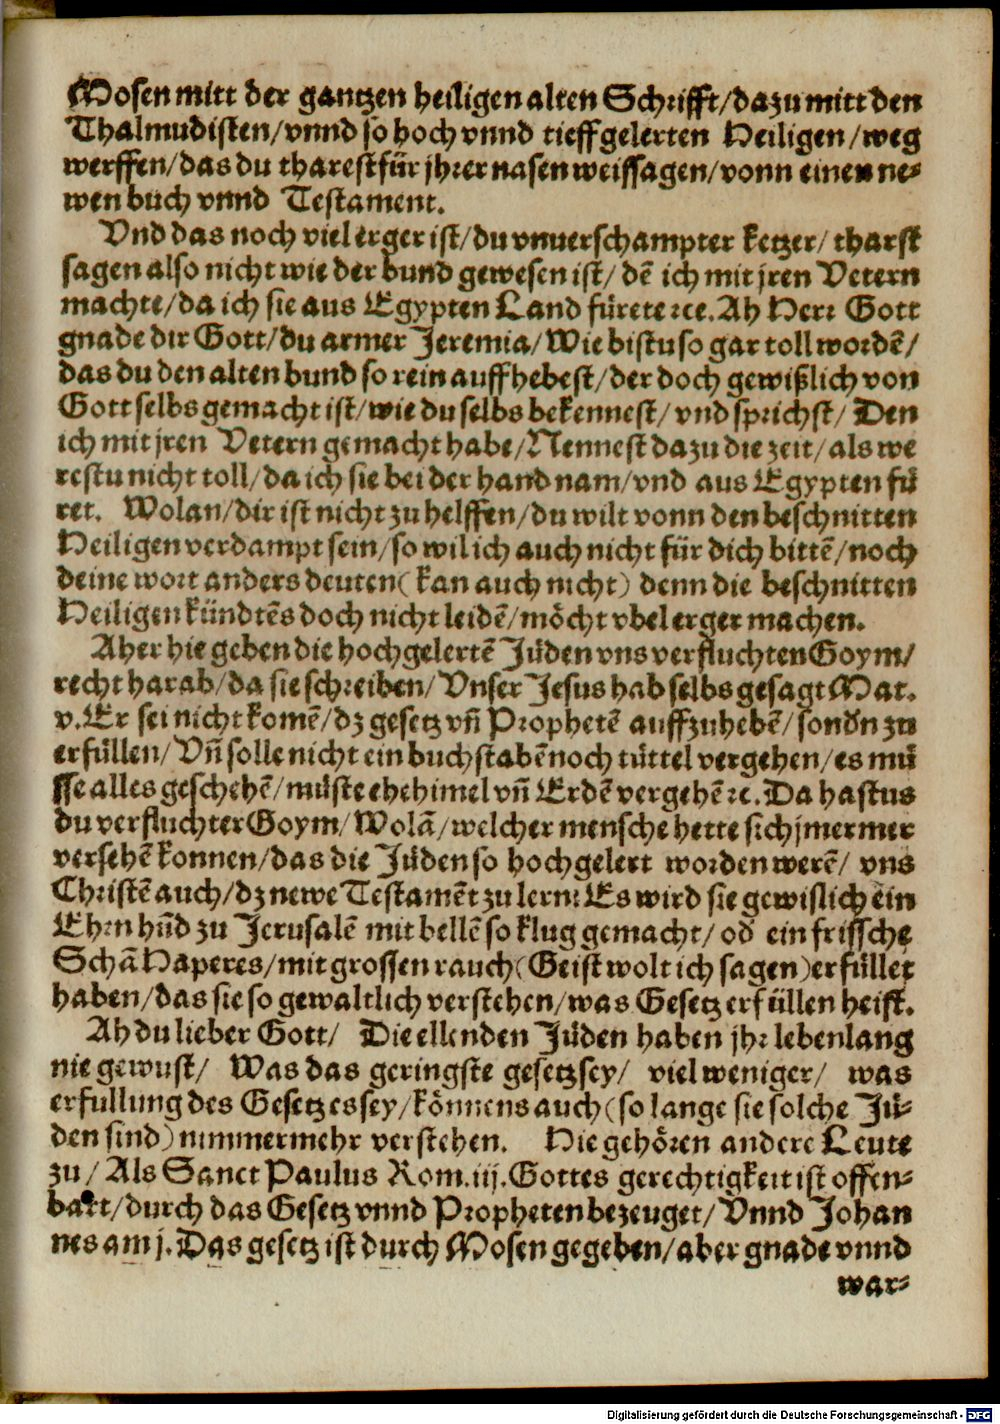 Mosen mitt der gantzen heiligen alten Schrifft/dazu mitt den
Thalmudisten/vnnd so hoch vnnd tieff gelerten Heiligen/weg
werffen/das du tharest für jhrer nasen weissagen/vonn einen ne⸗
wen buch vnnd Testament.
Vnd das noch viel erger ist/du vnuerschampter ketzer/tharst
sagen also nicht wie der bund gewesen ist/dē ich mit jren Vetern
machte/da ich sie aus Egypten Land fürete ꝛc. Ah Herr Gott
gnade dir Gott/du armer Jeremia/Wie bistu so gar toll wordē/
das du den alten bund so rein auffhebest/der doch gewißlich von
Gott selbs gemacht ist/wie du selbs bekennest/vnd sprichst/Den
ich mit jren Vetern gemacht habe/Nennest dazu die zeit/als we
restu nicht toll/da ich sie bei der hand nam/vnd aus Egypten fü
ret. Wolan/dir ist nicht zu helffen/du wilt vonn den beschnitten
Heiligen verdampt sein/so wil ich auch nicht für dich bittē/noch
deine wort anders deuten(kan auch nicht) denn die beschnitten
Heiligen kündtēs doch nicht leidē/möcht vbel erger machen.
Aber hie geben die hochgelertē Jüden vns verfluchten Goym/
recht harab/da sie schreiben/Vnser Jesus hab selbs gesagt Mat.
v. Er sei nicht komē/dz gesetz vn̄ Prophetē auffzuhebē/sondn̄ zu
erfüllen/Vn̄ solle nicht ein buchstabē noch tüttel vergehen/es mü
sse alles geschehē/müste ehe himel vn̄ Erdē vergehē ꝛc. Da hastus
du verfluchter Goym/Wolā/welcher mensche hette sich jmermer
versehē konnen/das die Jüden so hochgelert worden werē/vns
Christē auch/dz newe Testamēt zu lern: Es wird sie gewislich ein
Ehrn hūd zu Jerusalē mit bellē so klug gemacht/od̄ ein frissche
Schā Haperes/mit grossen rauch(Geist wolt ich sagen)erfüllet
haben/das sie so gewaltlich verstehen/was Gesetz erfüllen heist.
Ah du lieber Gott/ Die ellenden Jüden haben jhr lebenlang
nie gewust/ Was das geringste gesetz sey/ viel weniger/ was
erfullung des Gesetzes sey/können s auch(so lange sie solche Jü⸗
den sind)nimmermehr verstehen. Hie gehören andere Leute
zu/Als Sanct Paulus Rom. iij. Gottes gerechtigkeit ist offen⸗
bart/durch das Gesetz vnnd Propheten bezeuget/Vnnd Johan
nes am j. Das gesetz ist durch Mosen gegeben/aber gnade vnnd
war⸗
Digitalisierung gefördert durch die Deutsche Forschungsgemeinschaft - DFG